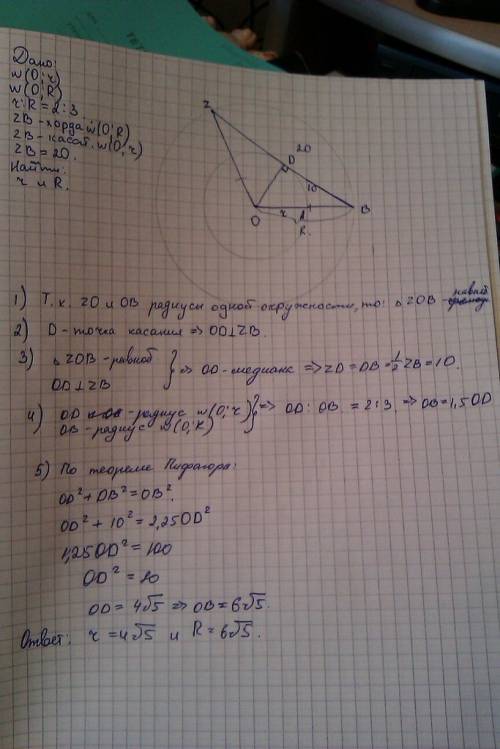 Дано:
w(O; r)
w(O; R)
r:R = 2:3
ZB - хорда w(O; R)
ZB - касат. w(O; r)
ZB = 20.
Найти:
r и R.
Z
20
D
10
O
r
A
B
R.
1) Т.к. ZO и OB радиусы одной окружности, то: △ ZOB - равноб
2) D - точка касания => OD⊥ZB.
3) △ ZOB - равноб
OD⊥ZB
} => OD - медиана => ZD = DB = 1/2 ZB = 10.
4) OD - радиус w(O; r)
OB - радиус w(O; R)
} => OD : OB = 2:3. => OB = 1,5OD
5) По теореме Пифагора:
OD² + DB² = OB².
OD² + 10² = 2,25OD²
1,25OD² = 100
OD² = 80
OD = 4√5 => OB = 6√5.
Ответ: r = 4√5 и R = 6√5.